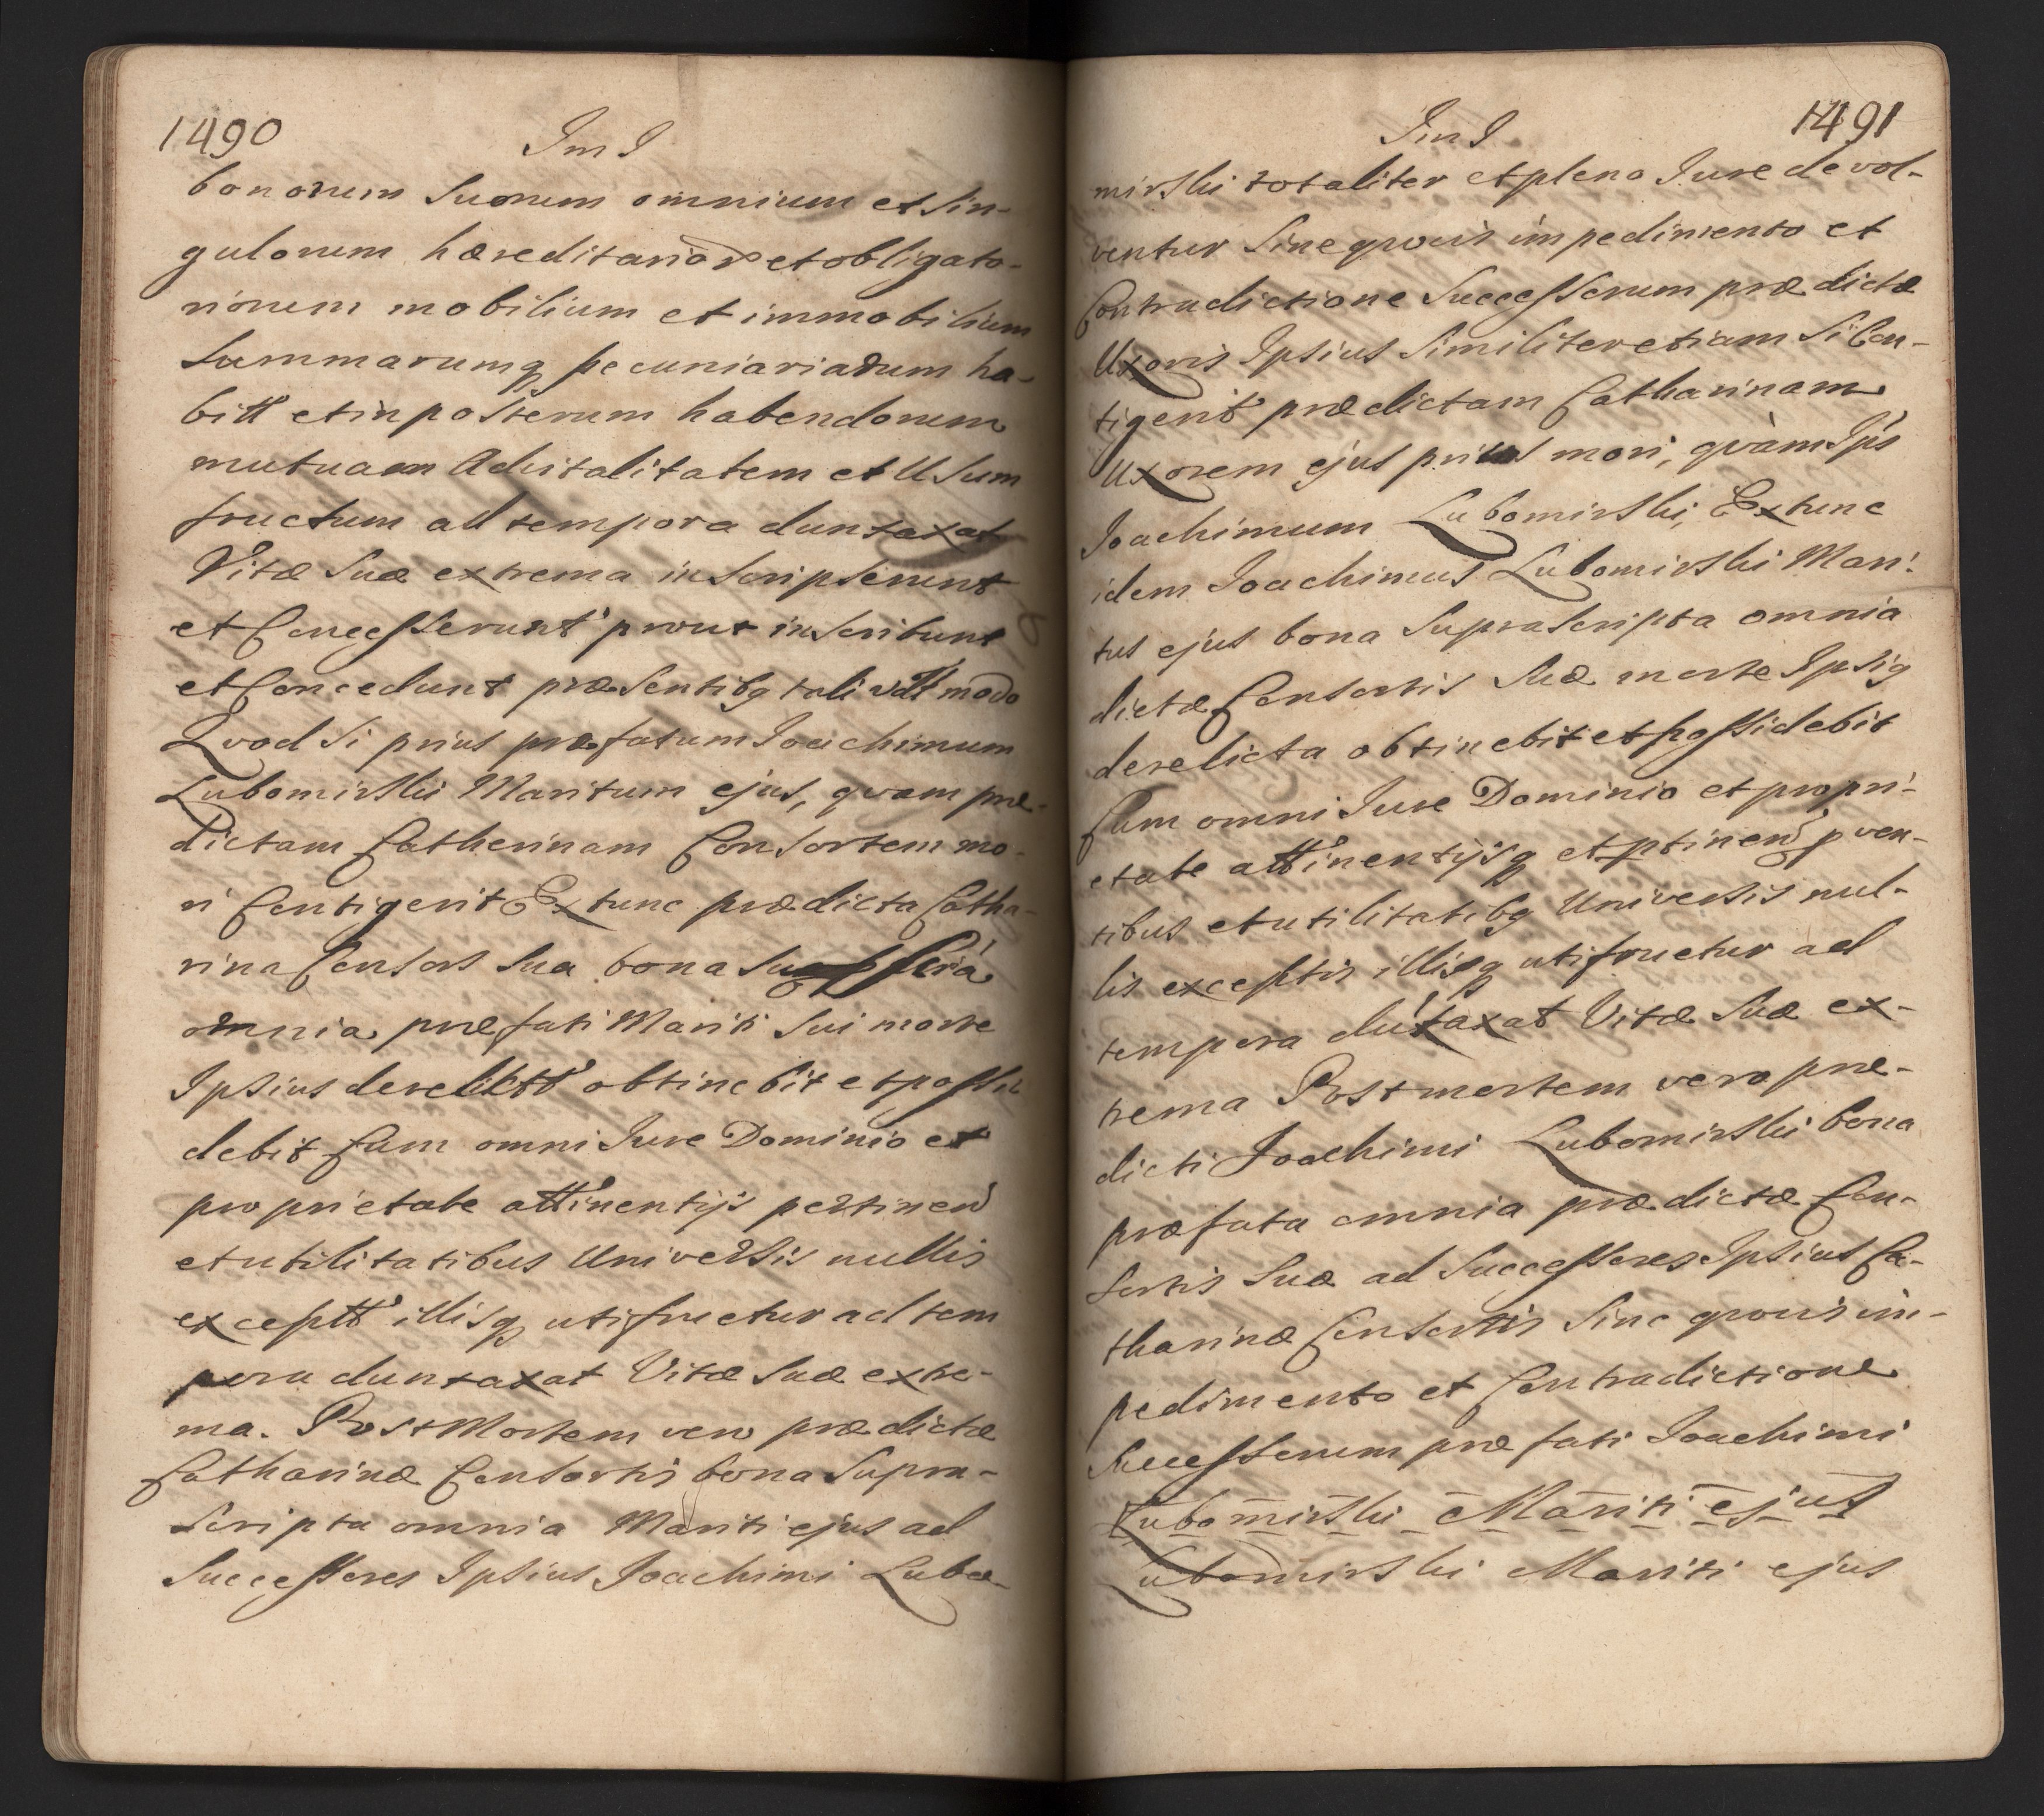 1490
Im I
bonorum Suorum omnium et Sin-
gulorum hæreditarior et obligato-
riorum mobilium et immobilium
Summarumq pecuniariarum ha-
bitt et in posterum habendorum
mutuam Advitalitatem et Usum
fructum ad tempora duntaxat
Vitæ Suæ extrema inscripserunt
et Concesserunt prout inscribunt
et Concedunt præsentibq tali vdtt modo
Qvod Si prius præfatum Joachimum
Lubomirski Maritum ejus, qvam præ-
dictam Catherinam Consortem mo-
ri Contigerit Extunc prædicta Catha-
rina Consors Sua bona
omnia præfati Mariti Sui morte
Ipsius derelictt obtinebit et possi-
debit Cum omni Jure Dominio et
proprietate attinentijs pertinen
et utilitatibus Universis nullis
exceptt illisq utifructur ad tem
pora duntaxat Vitæ Suæ extre-
ma. Post Mortem vero prædictæ
Catharinæ Consortis bona Supra-
scripta omnia Mariti ejus ad
Successores Ipsius Joachimi Lubo-
1491
Im I
mirski totaliter et pleno Jure devol-
ventur Sine qvovis impedimento et
Contradictione Successorum prædictæ
Uxoris Ipsius Similiter etiam Si Con-
tigerit prædictam Catharinam
Uxorem ejus prius mori, qvàm Ips
Joachimum Lubomirski, Extunc
idem Joachimus Lubomirski Mari-
tus ejus bona Suprascripta omnia
dictæ Consortis Suæ morte Ipsiq
derelicta obtinebit et possidebit
Cum omni Jure Dominio et propri-
etate attinentijsq et ptinen pven-
tibus et utilitatibq Universis nul-
lis exceptis illisq utifructur ad
tempora dutaxat Vitæ Suæ ex-
trema Post mortem vero præ-
dicti Joachimi Lubomirski bona
præfata omnia prædictæ Con-
sortis Suæ ad Successores Ipsius Ca-
tharinæ Consortis Sine qvovis im-
pedimento et Contradictione
Successorum præfati Joachimi
Lubomirski Mariti ejus
Lubomirski Mariti ejus